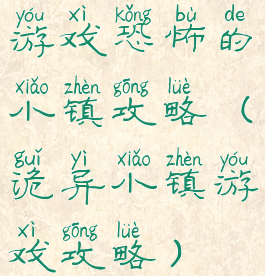 yóu xì kǒng bù de
游戏恐怖的
xiǎo zhèn gōng lüè
小镇攻略（
guǐ yì xiǎo zhèn yóu
诡异小镇游
xì gōng lüè
戏攻略）